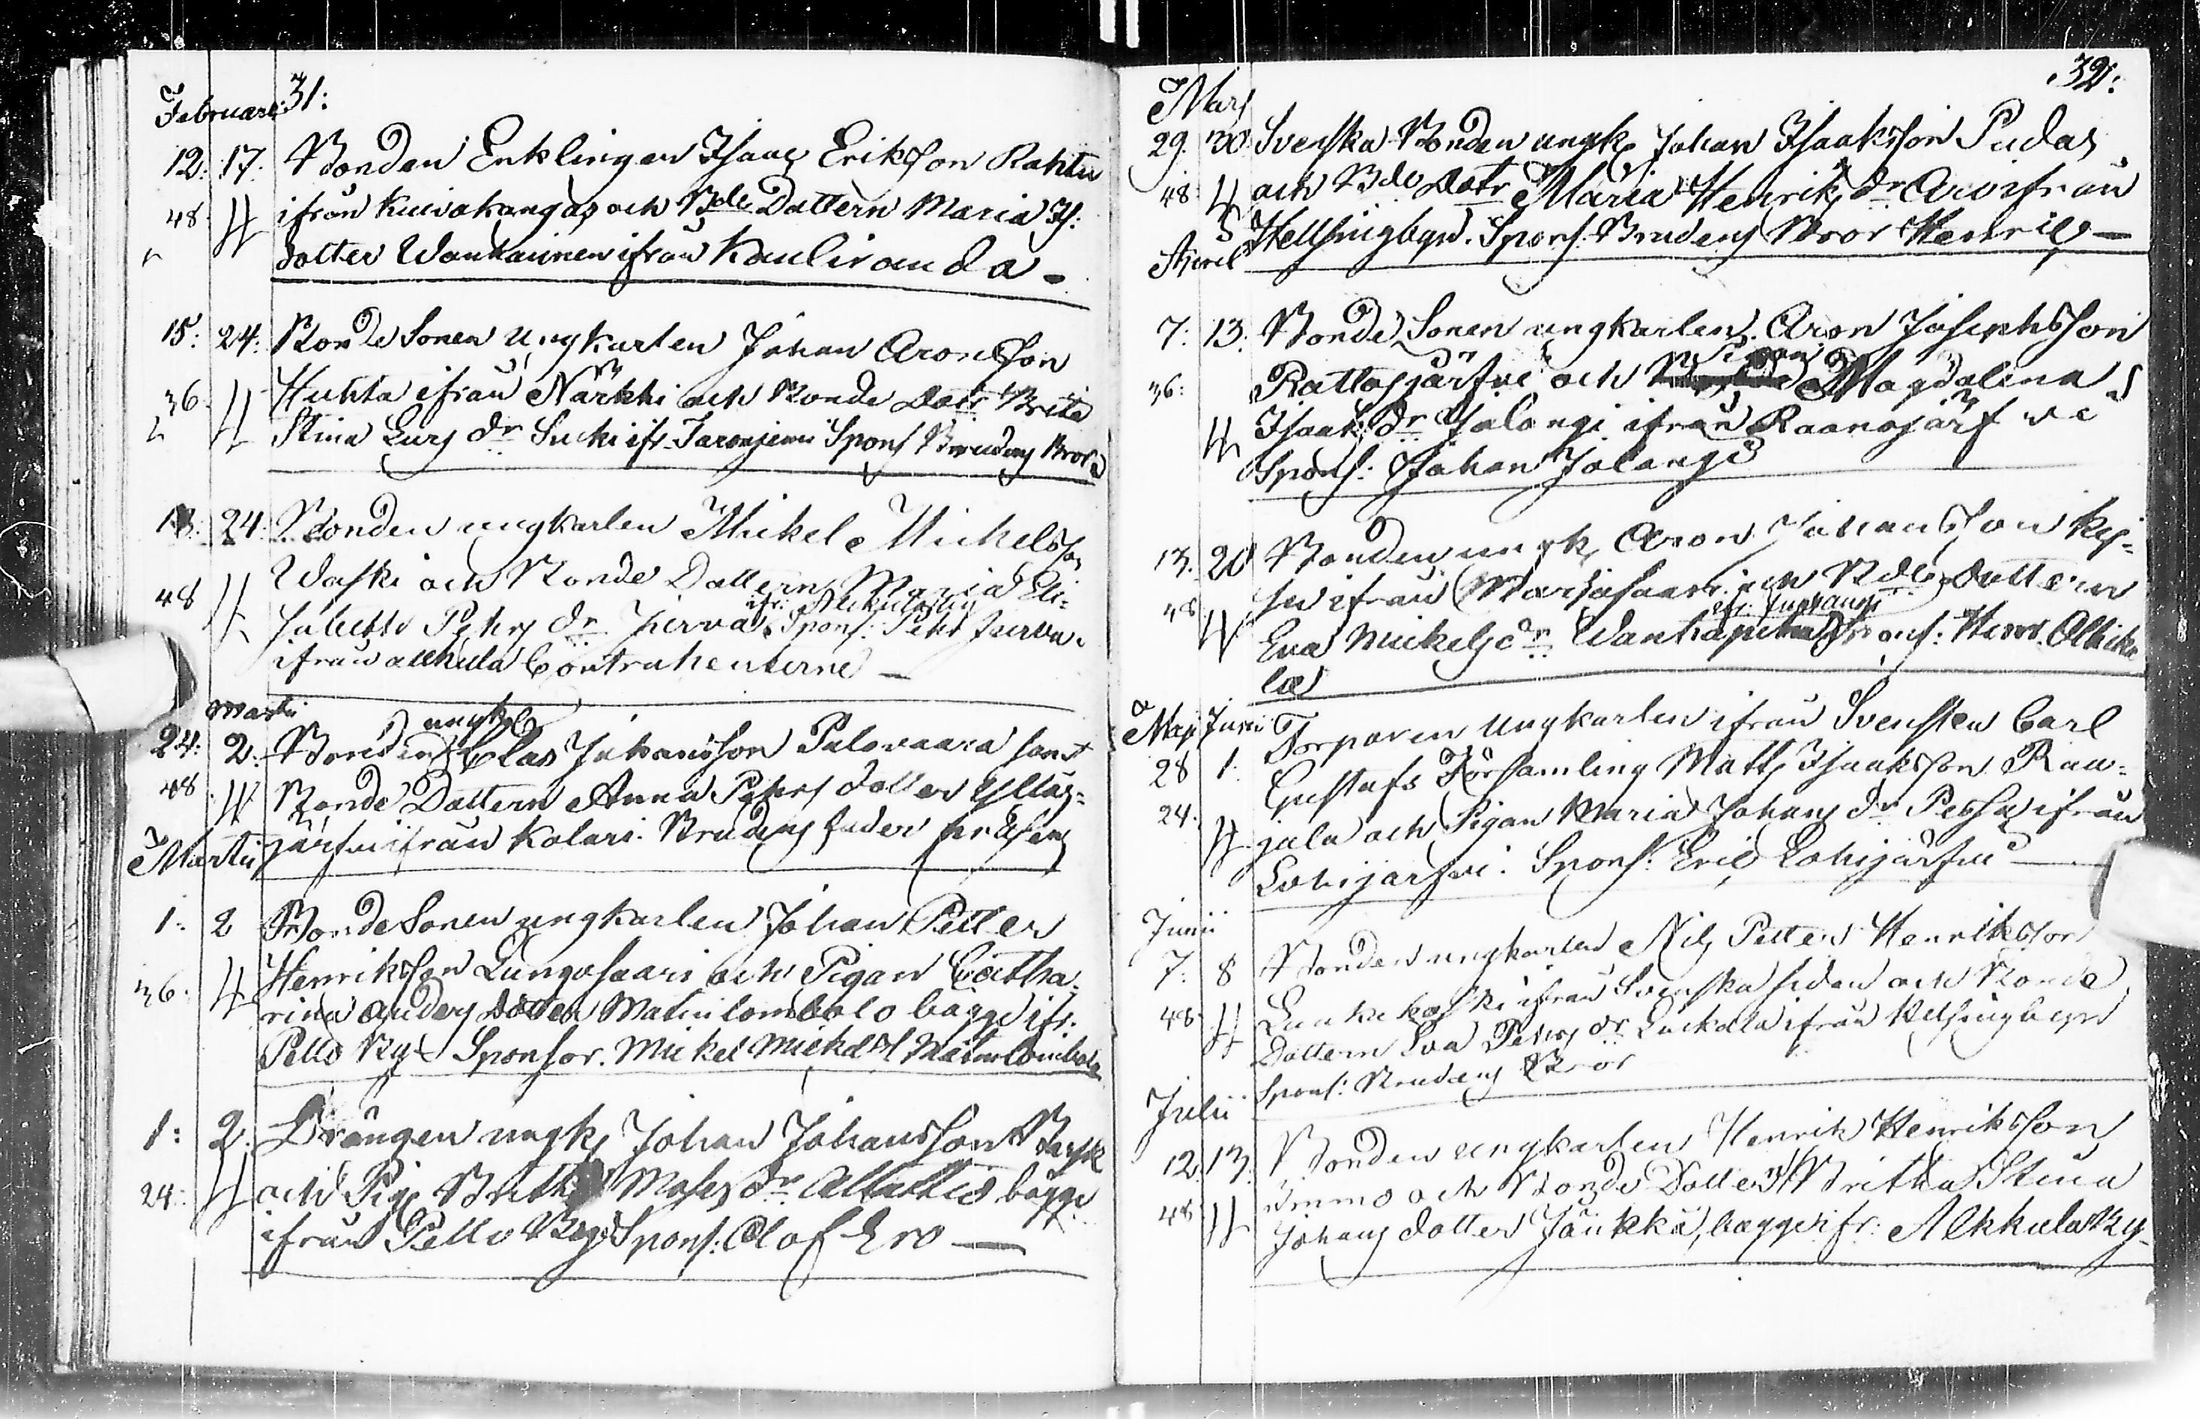 31:
Februari
12. 17. Bonden Enklingen Isaac Eriksson Rahtu
48. ifrån Kuivakangas och Bde Dottern Maria Is:
dotter Wankainen ifrån Kauliranda -
15: 24: Bonde Sonen Ungkarlen Johan Aronsson
36. Huhta ifrån Närkki och Bonde Dotr Brita
Stina Lars dr Sucki ifr. Spons Brudens Bror
13. 24. Bonden ungkarlen Mikel Michelsson
48 Waski och Bonde Dottern Maria Eli=
ifr: Alkula
sabeth Pehrs dr Spons: Pehr
ifrån alkula Contrahenterne -
Martii
ungk
24: 2. Bonden Clas Johansson Palovaara samt
48 Bonde Dottern Anna Pehrs dotter Ylläs=
Martii järfvi ifrån Kolari. Brudens fader
1: 2 Bonde Sonen ungkarlen Johan Petter
36. Henriksson Lungosaari och Pigan Catha=
rina Anders Dotter Matinlombolo bägge ifr:
Pello By Sponsor. Mickel Mickels Matinlombolo
1: 2. Drängen ungk Johan Johansson
24: och Pig Britha Mats dr bägge
ifrån Pello By Spons: Olof Ero -
32:
Mars
29. 30. Svenska Bonden ungk Johan Isaksson Pudas
48. och Bde Dotr Maria Henriks dr ifrån
5 Hellsingbyn. Spons. Brudens Bror Henric -
Aprel
7: 13. Bonde Sonen ungkarlen Aron Josephsson
Pigan
36: Rattosjärfvi och Magdalena
Isaks dr Jolangi ifrån Raanojärfve
Spons: Johan Jolangi
13. 20 Bonden ungk Aron Johansson
48. ifrån Marjosaari och Bde Dottern
Eva Mickels dr Spons: Henr. Ollika
la
Maji Juni Torparen Ungkarlen ifrån Svenska Carl
28 1. Gustafs Församling Matts Isaksson Rau=
24. jala och Pigan Maria Johans dr Pessa ifrån
Lohijärfvi. Spons: Eric Lohijärfvi -
Junii
7. 8 Bonden ungkarlen Nils Petter Henriksson
48. ifrån Svenska sidan och Bonde
Dottern Eva Pehrs dr Luckala ifrån Helsingbyn
Spons: Brudens Bror
Julii
12. 13. Bonden ungkarlen Henrik Henriksson
48. Immo och Bonde Dottern Britha Stina
Johans dotter Jänkkä, bägge ifr: Alkkula By